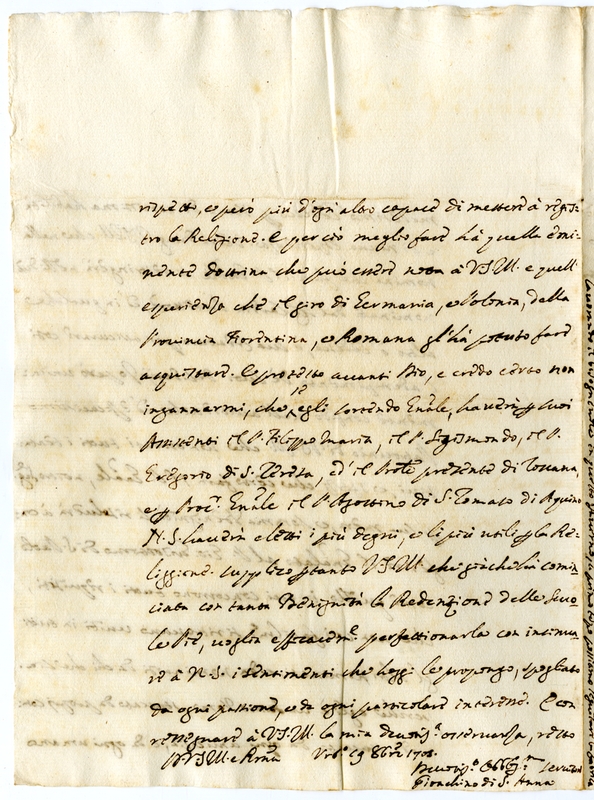 rispetto, e però più d'ogni altro capace di mettere à regis-
tro la Religione. E perciò meglio farà hà quella emi-
nente dottrina che può essere nota à V.S.Ill. e quell'
esperienza che il giro di Germania, e Polonia, della
Provincia Fiorentina, e Romana gl'hà potuto fare
acquistare. E protesto avanti Dio, e credo certo non
ingannarmi, che se egli sortendo Gnale, haverà p suoi
Assistenti il P. Filippo Maria, il P. Sigismondo, il P.
Gregorio di S. Teresa, ed il Prole presente di Toscana,
e p Proc. Gnale il P. Agostino di S. Tomaso di Aquino
N.S. haverà eletti i più degni, e li più utili p la Re-
liggione. Supplico p tanto V.S.Ill. che giache hà comin
ciata con tanta Benignità la Redenzione delle Scuo
le Pie, voglia efficacem.e perfettionarla con insinua
re à N.S. i sentimenti che hoggi le propongo, spogliato
da ogni passione, e da ogni particolare interesse. E con
rassegnare à V.S.Ill. la mia devotis.a osservanza, resto
D V.S.Ill. e R.ma 19 8bre 1708.
Devotis.o Obblig.mo Servitore
Gioachino di S. Anna